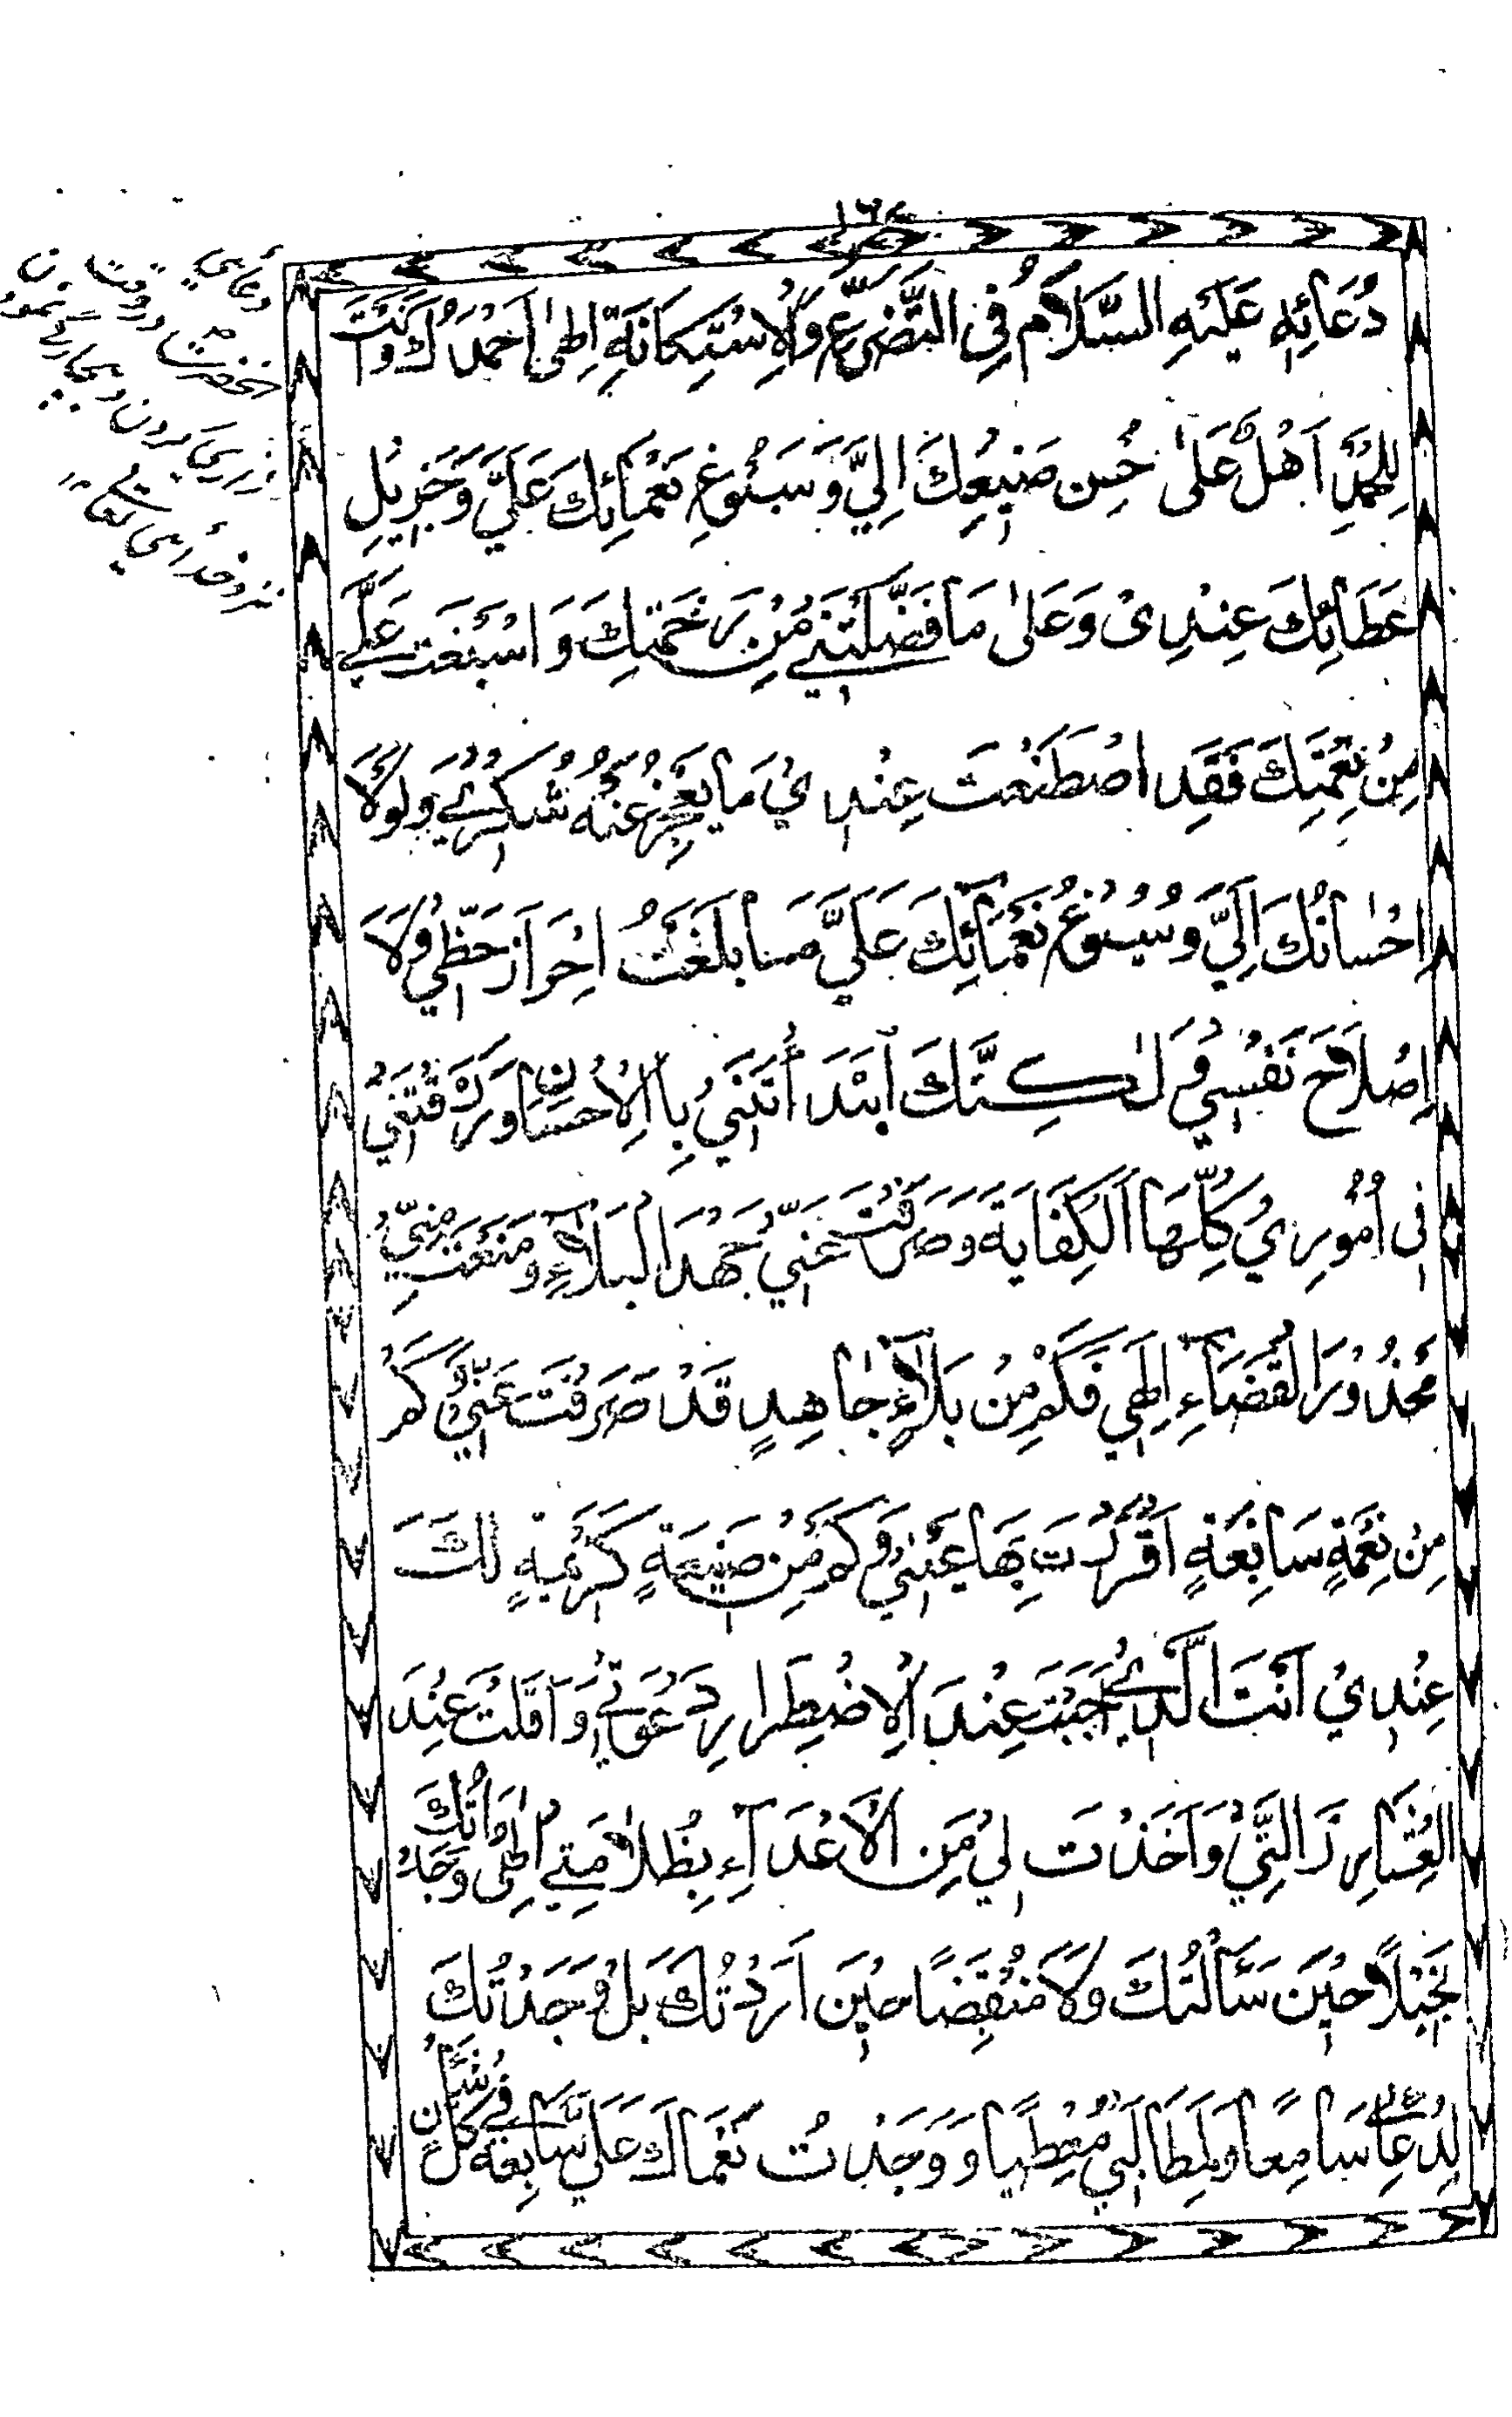 ١٦٤
دُعَائِهِ عَلَيْهِ السَّلَامُ فِي التَّضَرُّعِ وَالْاِسْتِكَانَةِ اِلٰهِي اَحْمَدُكَ وَاَنْتَ
لِلْحَمْدِ اَهْلٌ عَلٰى حُسْنِ صَنِيعِكَ اِلَيَّ وَسَبُوغِ نَعْمَائِكَ عَلَيَّ وَجَزِيلِ
عَطَائِكَ عِنْدِي وَعَلٰى مَا فَضَّلْتَنِي مِنْ رَحْمَتِكَ وَاَسْبَغْتَ عَلَيَّ
مِنْ نِعْمَتِكَ فَقَدِ اصْطَنَعْتَ عِنْدِي مَا يَعْجِزُ عَنْهُ شُكْرِي وَلَوْلَا
اِحْسَانُكَ اِلَيَّ وَسُبُوغُ نَعْمَائِكَ عَلَيَّ مَا بَلَغْتُ اِحْرَازَ حَظِّي وَلَا
اِصْلَاحَ نَفْسِي وَلٰكِنَّكَ ابْتَدَأْتَنِي بِالْاِحْسَانِ وَرَزَقْتَنِي
فِي اُمُورِي كُلِّهَا الْكِفَايَةَ وَصَرَفْتَ عَنِّي جَهْدَ الْبَلَاءِ وَمَنَعْتَ مِنِّي
مَحْذُورَ الْقَضَاءِ اِلٰهِي فَكَمْ مِنْ بَلَاءٍ جَاهِدٍ قَدْ صَرَفْتَ عَنِّي وَكَمْ
مِنْ نِعْمَةٍ سَابِغَةٍ اَقْرَرْتَ بِهَا عَيْنِي وَكَمْ مِنْ صَنِيعَةٍ كَرِيمَةٍ لَكَ
عِنْدِي اَنْتَ الَّذِي اَجَبْتَ عِنْدَ الْاِضْطِرَارِ دَعْوَتِي وَاَقَلْتَ عِنْدَ
الْعِثَارِ زَلَّتِي وَاَخَذْتَ لِي مِنَ الْاَعْدَاءِ بِظُلَامَتِي اِلٰهِي مَا وَجَدْتُكَ
بَخِيلًا حِينَ سَأَلْتُكَ وَلَا مُنْقَبِضًا حِينَ اَرَدْتُكَ بَلْ وَجَدْتُكَ
لِدُعَائِي سَامِعًا وَلِمَطَالِبِي مُعْطِيًا وَوَجَدْتُ نُعْمَاكَ عَلَيَّ سَابِغَةً فِي كُلِّ شَأْنٍ
دعاى
حضرت در وقت
زارى كردن و بيچارگى نمودن
نزد خداى تعالى